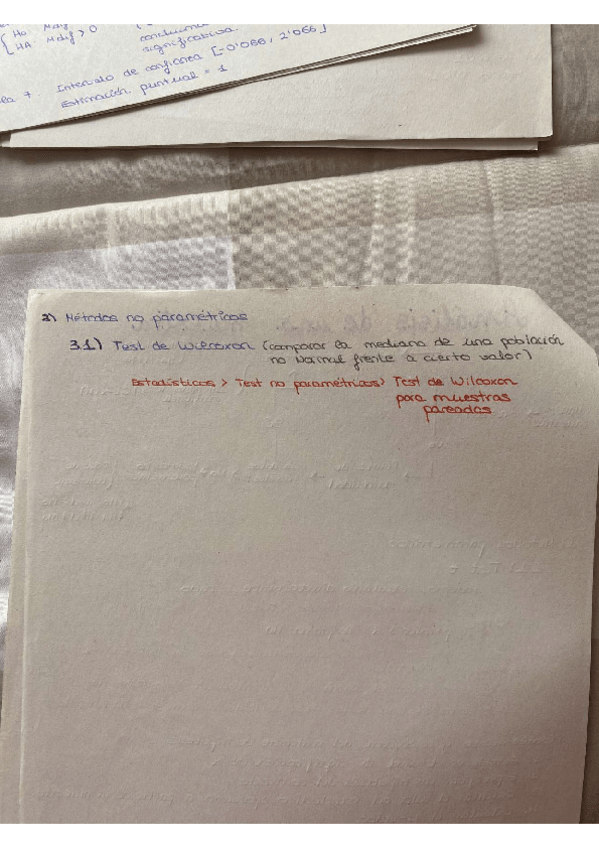 Ho Mdif
HA Mdif > 0
significativa.
Intervalo de confianza [-0'066, 2'066]
Estimación puntual = 1
3) Métodos no paramétricos
3.1) Test de Wilcoxon (comparar la mediana de una población
no Normal frente a cierto valor)
Estadísticos > Test no paramétricos > Test de Wilcoxon
para muestras
pareadas